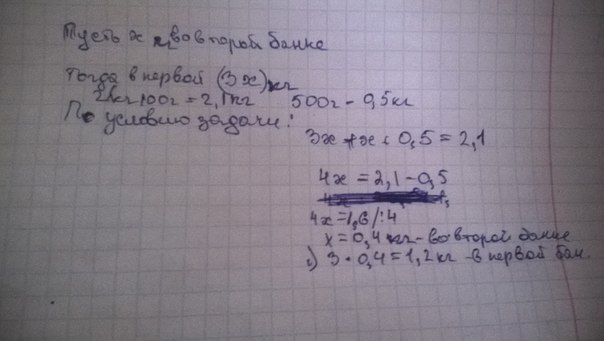 Пусть x кг во второй банке
Тогда в первой (3x) кг
2кг100г = 2,1кг 500г - 0,5кг
По условию задачи:
3x + x + 0,5 = 2,1
4x = 2,1 - 0,5
4x = 1,6 /:4
x = 0,4 кг - во второй банке
1) 3 · 0,4 = 1,2 кг - в первой бан.